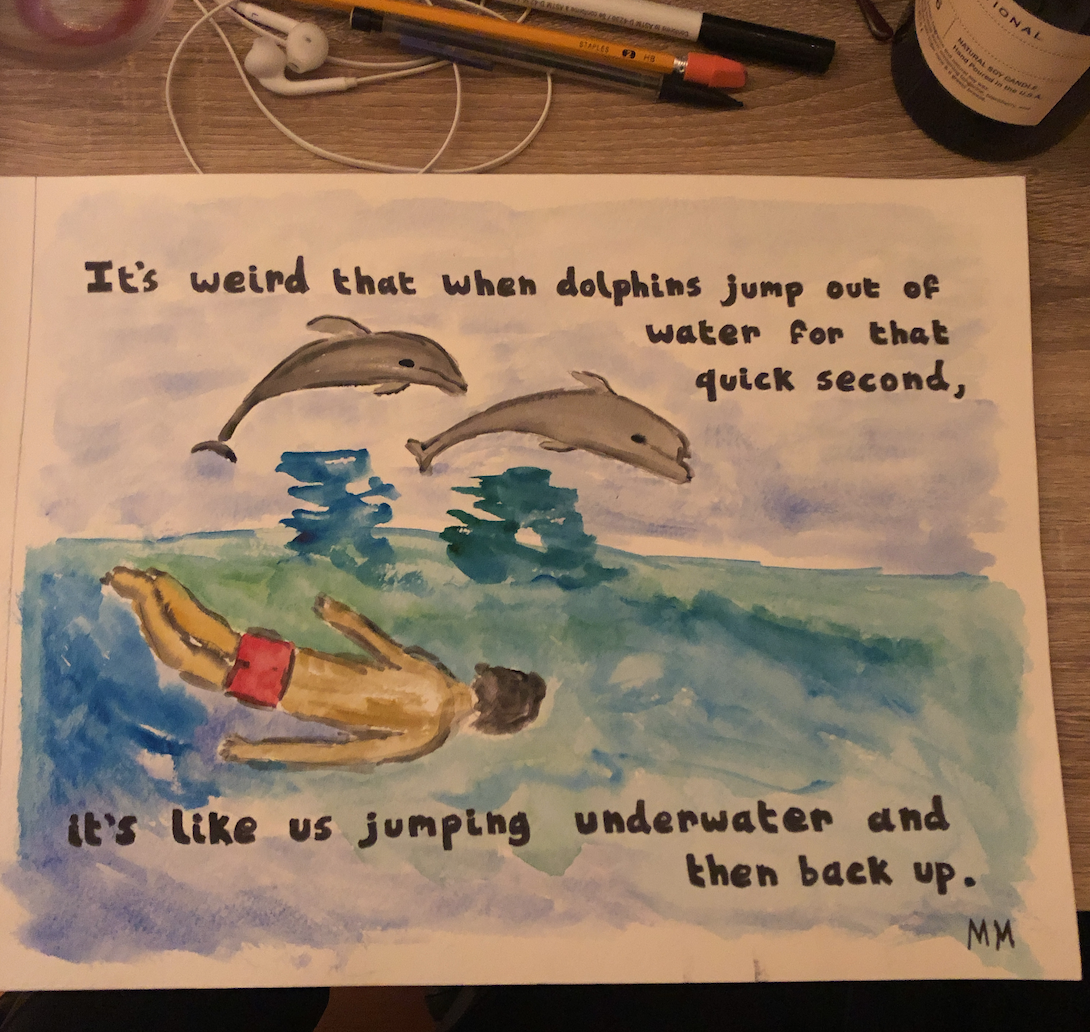 STAPLES 2 HB
IONAL
NATURAL SOY CANDLE
Hand Poured in the U.S.A.
It's weird that when dolphins jump out of
water for that
quick second,
it's like us jumping underwater and
then back up.
MM